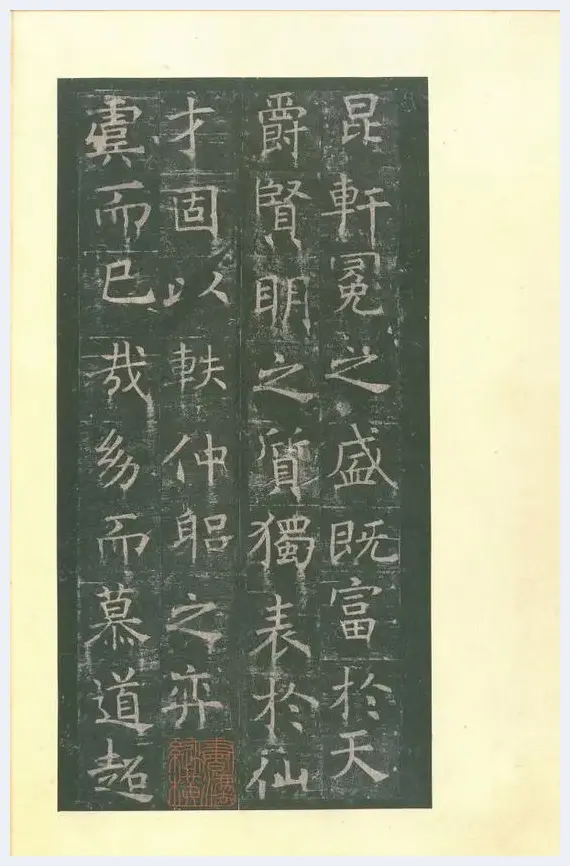 昆軒冕之盛既富於天
爵賢明之質獨表於仙
才固以軼仲躳之弈
虞而已哉幼而慕道超